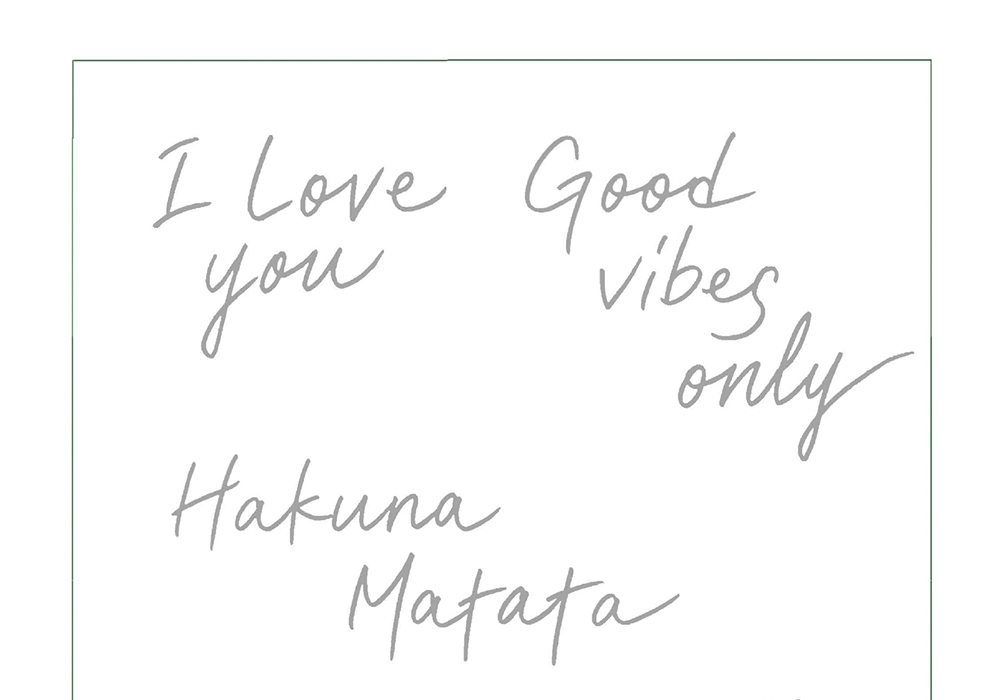 I Love
you
Good
vibes
only
Hakuna
Matata